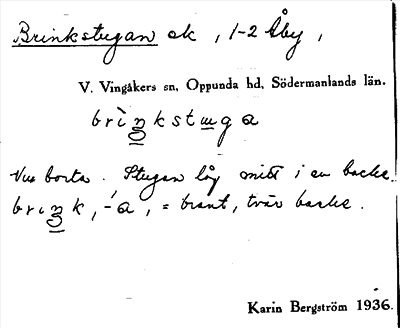 Brinkstugan ek, 1-2 Åby,
V. Vingåkers sn, Oppunda hd, Södermanlands län.
brìŋkstuga
Nu borta. Stugan låg mitt i en backe.
brìŋk, -a, = brant, tvär backe.
Karin Bergström 1936.